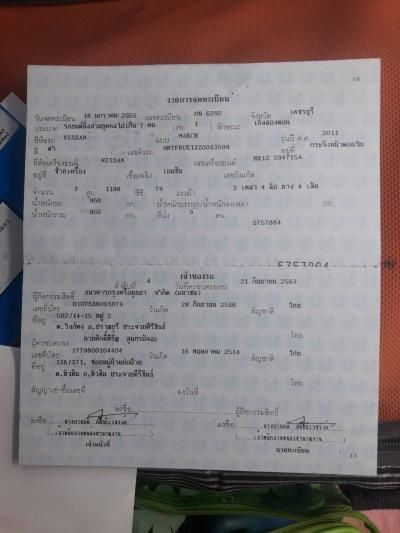 10
รายการจดทะเบียน
วันจดทะเบียน 18 มกราคม 2555 เลขทะเบียน กม 6292 จังหวัด เพชรบุรี
ประเภท รถยนต์นั่งส่วนบุคคลไม่เกิน 7 คน (รย. 1 ) ลักษณะ เก๋งสองตอน
ยี่ห้อรถ NISSAN แบบ MARCH รุ่นปี ค.ศ. 2011
สี ดำ เลขตัวรถ อยู่ที่
ยี่ห้อเครื่องยนต์ NISSAN เลขเครื่องยนต์ HR12 394715A
อยู่ที่ ข้างเครื่อง เชื้อเพลิง เบนซิน เลขถังแก๊ส
จำนวน 3 สูบ 1198 ซีซี 79 แรงม้า 2 เพลา 4 ล้อ ยาง 4 เส้น
น้ำหนักรถ 950 กก. น้ำหนักบรรทุก/น้ำหนักลงเพลา กก.
น้ำหนักรวม 950 กก. ที่นั่ง 5 คน
5757884
เจ้าของรถ
ลำดับที่ 4 วันที่ครอบครองรถ 21 กันยายน 2563
ผู้ถือกรรมสิทธิ์ ธนาคารกรุงศรีอยุธยา จำกัด (มหาชน)
เลขที่บัตร 0107536001079 วันเกิด 28 กันยายน 2536 สัญชาติ ไทย
ที่อยู่ 502/14-15 หมู่ 2
ต.วังก์พง อ.ปราณบุรี ประจวบคีรีขันธ์ โทร.
ผู้ครอบครอง
เลขที่บัตร 1779800104404 วันเกิด 16 พฤษภาคม 2534 สัญชาติ ไทย
ที่อยู่ 136/371, ซอยหมู่บ้านบ่อฝ้าย
ต.หัวหิน อ.หัวหิน ประจวบคีรีขันธ์ โทร.
สัญญาเช่าซื้อเลขที่ ลงวันที่
ลงชื่อ ผู้ถือกรรมสิทธิ์
ลงชื่อ ลงชื่อ
เจ้าหน้าที่ นายทะเบียน
11